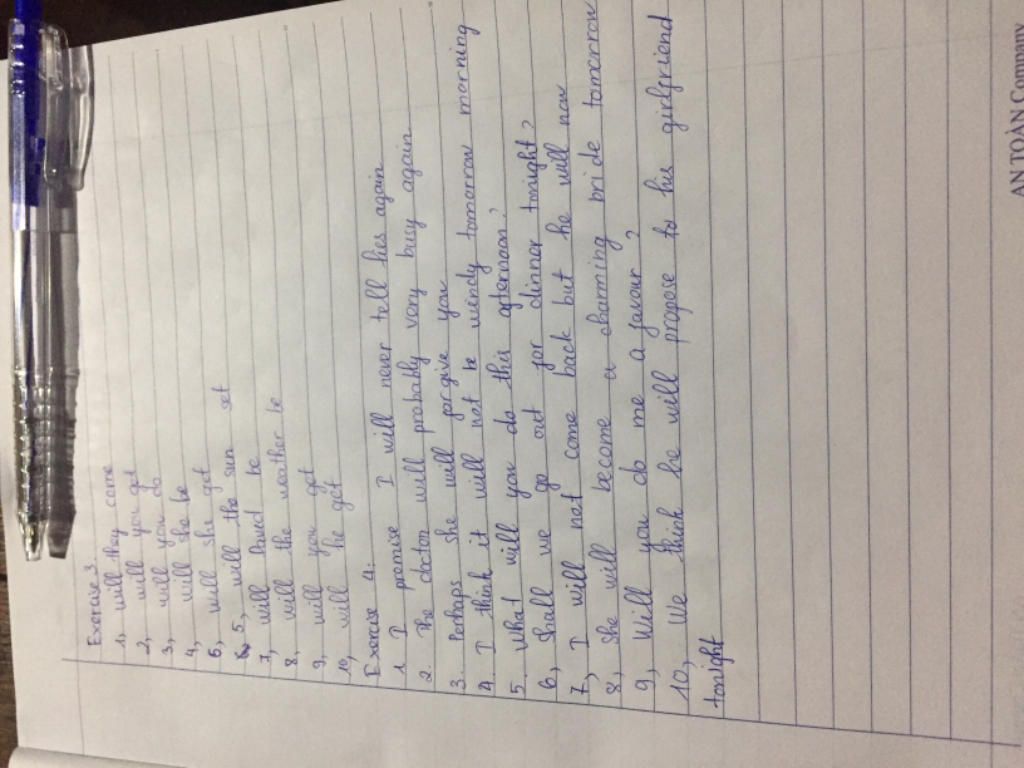 Exercise 3.
1, will they come
2, will you get
3, will you do
4, will she be
5, will she get
5, will the sun set
7, will David be
8, will the weather be
9, will you get
10, will he get
Exercise 4.
1. I promise I will never tell lies again
2. The doctor will probably very busy again
3. Perhaps she will forgive you
4. I think it will not be windy tomorrow morning
5. What will you do this afternoon?
6, Shall we go out for dinner tonight?
7, I will not come back but he will now
8, She will become a charming bride tomorrow
9, Will you do me a favour?
10, We think he will propose to his girlfriend
tonight
AN TOÀN Company